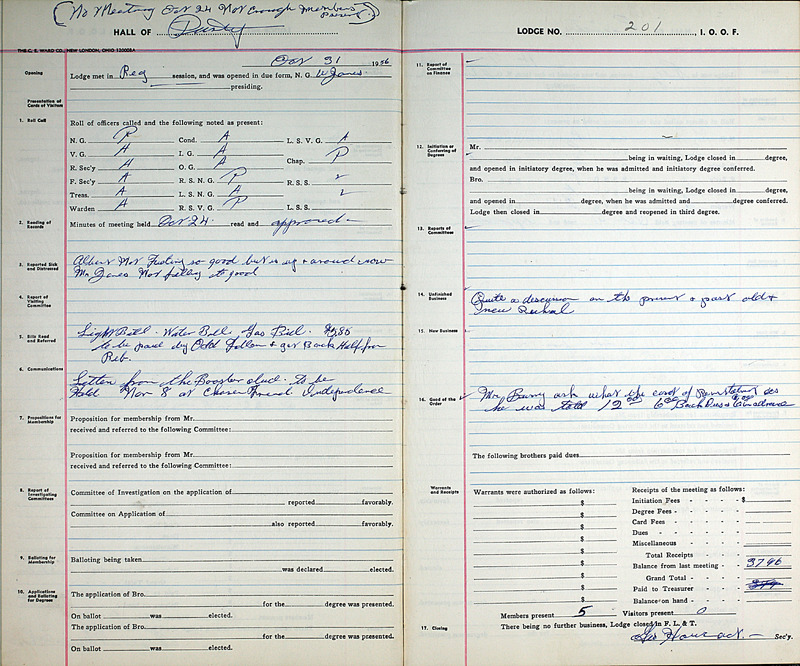 (No Meeting Oct 24 Not enough members present.)
HALL OF Purity
THE C. E. WARD CO., NEW LONDON, OHIO 120028A
Oct 31 1956
Opening
Lodge met in Reg session, and was opened in due form, N. G. W Jones
presiding.
Presentation of Cards of Visitors
1. Roll Call
Roll of officers called and the following noted as present:
N. G. P Cond. A L. S. V. G. A
V. G. A I. G. A Chap. P
R. Sec'y A O. G. A
F. Sec'y A R. S. N. G. P R. S. S.
Treas. A L. S. N. G. A L. S. S.
Warden A R. S. V. G. P
2. Reading of Records
Minutes of meeting held Oct 24 read and approved
3. Reported Sick and Distressed
Albert Not Feeling so good but is up & around now
Mr Jones Not feeling to good
4. Report of Visiting Committee
5. Bills Read and Referred
Light Bill. Water Bill, Gas Bill.
to be paid by Odd Fellow & get Back Half from
Reb.
6. Communications
Letter from the Booster club. to be
Held Nov 8 at Chosen Friend Independence
7. Propositions for Membership
Proposition for membership from Mr.
received and referred to the following Committee:
Proposition for membership from Mr.
received and referred to the following Committee:
8. Report of Investigating Committees
Committee of Investigation on the application of
reported favorably.
Committee on Application of
also reported favorably.
9. Balloting for Membership
Balloting being taken
was declared elected.
10. Applications and Balloting for Degrees
The application of Bro.
for the degree was presented.
On ballot was elected.
The application of Bro.
for the degree was presented.
On ballot was elected.
LODGE NO. 201, I. O. O. F.
11. Report of Committee on Finance
12. Initiation or Conferring of Degrees
Mr.
being in waiting, Lodge closed in degree,
and opened in initiatory degree, when he was admitted and initiatory degree conferred.
Bro.
being in waiting, Lodge closed in degree,
and opened in degree, when he was admitted and degree conferred.
Lodge then closed in degree and reopened in third degree.
13. Reports of Committees
14. Unfinished Business
Quite a discussion on the present & past old &
new
15. New Business
16. Good of the Order
Mr. Barry ask what the cost of
he was told 12.00 6.00 Back Dues &
The following brothers paid dues
Warrants and Receipts
Warrants were authorized as follows:
$
$
$
$
$
$
$
$
$
Receipts of the meeting as follows:
Initiation Fees - - $
Degree Fees
Card Fees
Dues
Miscellaneous
Total Receipts
Balance from last meeting - 3796
Grand Total
Paid to Treasurer
Balance on hand
Members present 5 Visitors present 0
17. Closing
There being no further business, Lodge closed in F. L. & T.
Sec'y.